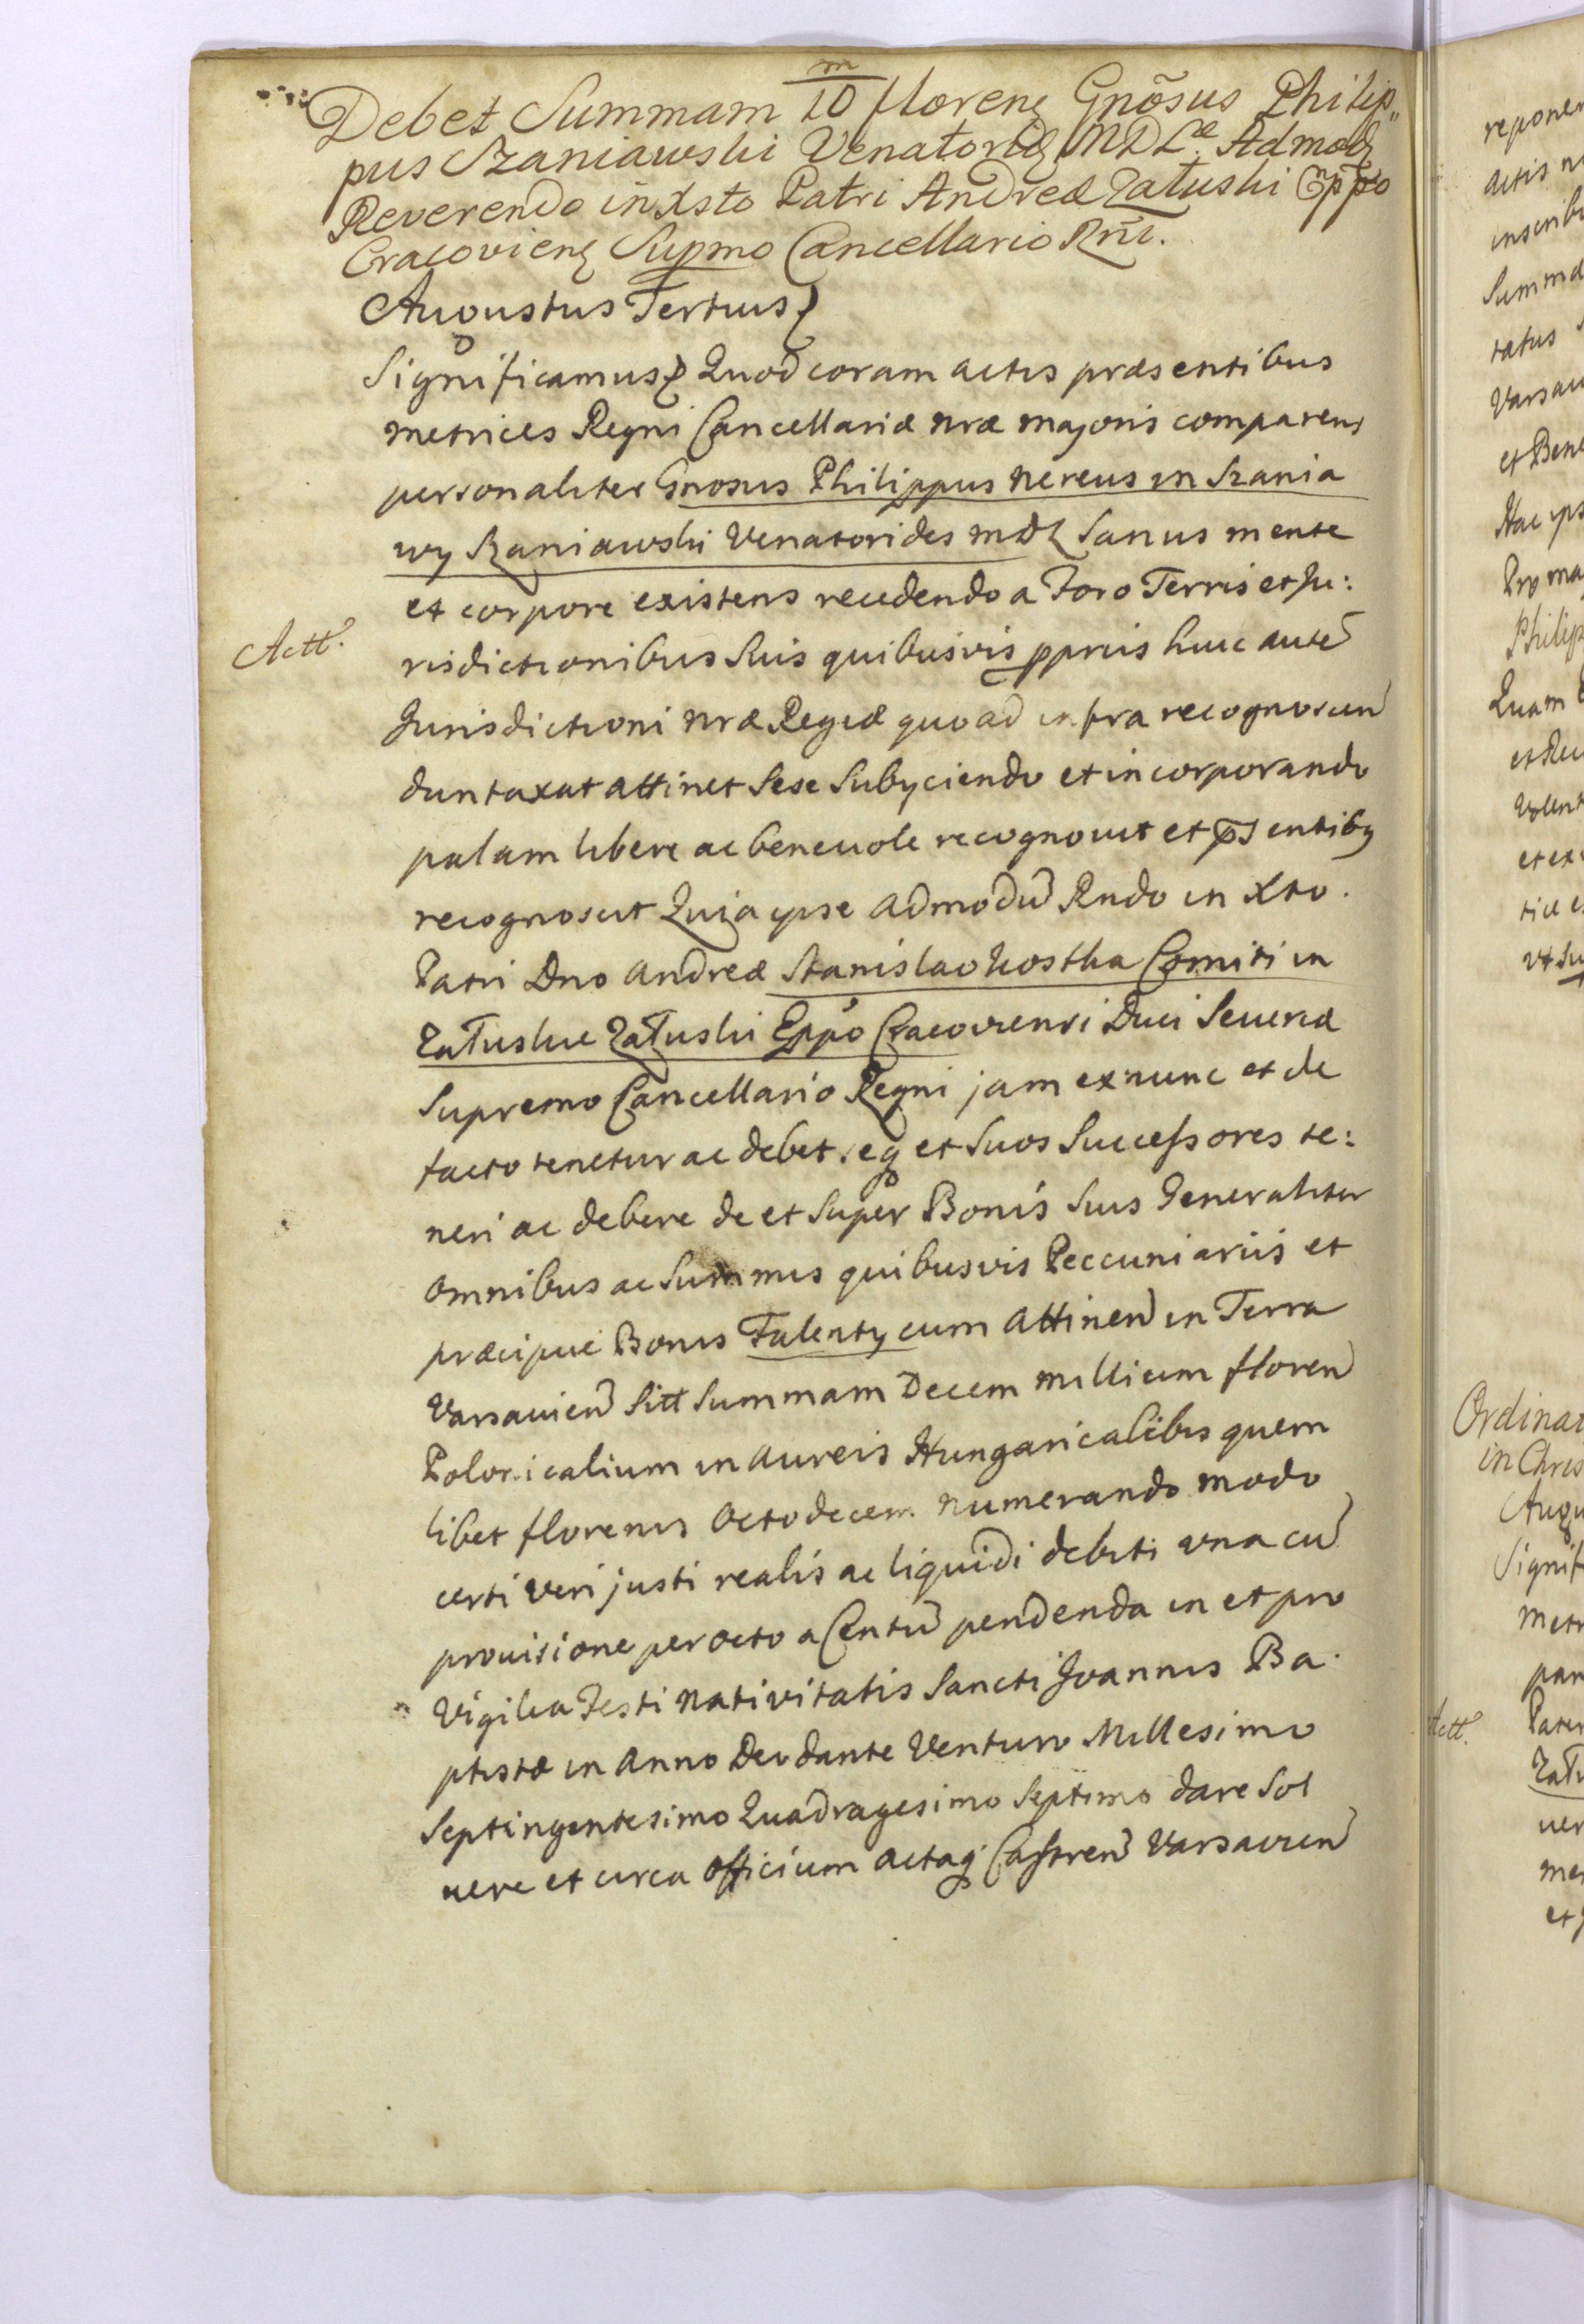 Debet Summam 10 m florenz Gnõsus Philip„
pus Szaniawski Venatoridz MDLæ Admodz
Reverendo in Xsto Patri Andreæ Załuski Eppo
Cracovienz Supmo Cancellario Rni.
Augustus Tertius
Significamus Quod coram actis præsentibus
metrices Regni Cancellariæ nræ majoris comparens
Actt.
personaliter Gnosus Philippus Nereus in Szania
wy Szaniawski Venatorides MDL Sanus mente
et corpore existens recedendo a Foro Terris et Ju:
risdictionibus Suis quibusvis ppriis huic aute
Jurisdictioni nræ Regiæ quoad infra recognoscen
duntaxat attinet Sese Subyciendo et incorporando
palam libere ac beneuole recognouit et psentibq
recognoscit Quia ipse admodu Rndo in Xto.
Patri Dno Andreæ Stanislao Kostka Comiti in
Załuskie Załuski Eppo Cracoviensi Duci Seueriæ
Supremo Cancellario Regni jam ex nunc et de
facto tenetur ac debet seq et Suos Successores te:
neri ac debere de et Super Bonis Suis Generaliter
omnibus ac Summis quibusvis Peccuniariis et
præcipue Bonis Falenty cum attinen in Terra
Varsavien Sitt Summam Decem millium floren
Polonicalium in aureis Hungaricalibus quem
libet florenis octodecem numerando modo
certi veri justi realis ac liquidi debiti una cu
prouisione per octo a Centu pendenda in et pro
Vigilia Festi Nativitatis Sancti Joannis Ba.
ptistæ in Anno Deo dante Venturo Millesimo
Septingentesimo Quadragesimo Septimo dare Sol
uere et circa officium actaq Castren Varsavien
reponen
actis n
inscrib
Summa
tatus
Varsav
et Bene
Hac ips
Pro ma
Philip
Quam
Volent
et ex
Ordinar
in Chris
Augu
Signif
Metr
par
Actt.
Pater
uer